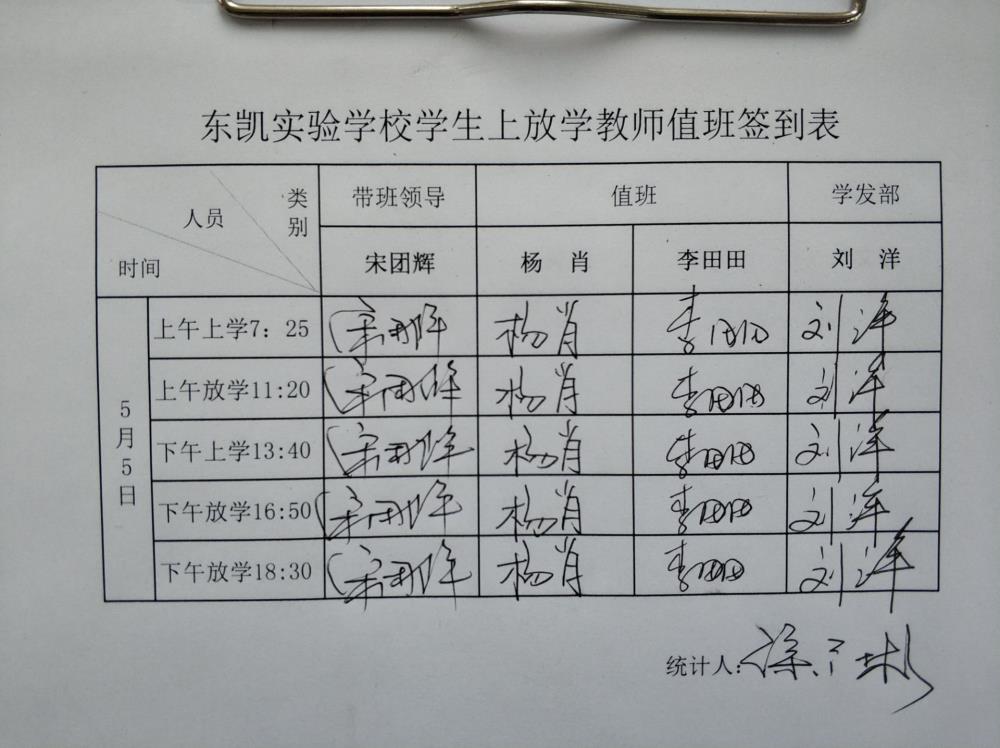 东凯实验学校学生上放学教师值班签到表
类别 人员 时间 带班领导 值班 学发部
宋团辉 杨 肖 李田田 刘 洋
5月5日
上午上学7：25 宋团辉 杨肖 李田田 刘洋
上午放学11:20 宋团辉 杨肖 李田田 刘洋
下午上学13:40 宋团辉 杨肖 李田田 刘洋
下午放学16:50 宋团辉 杨肖 李田田 刘洋
下午放学18:30 宋团辉 杨肖 李田田 刘洋
统计人：